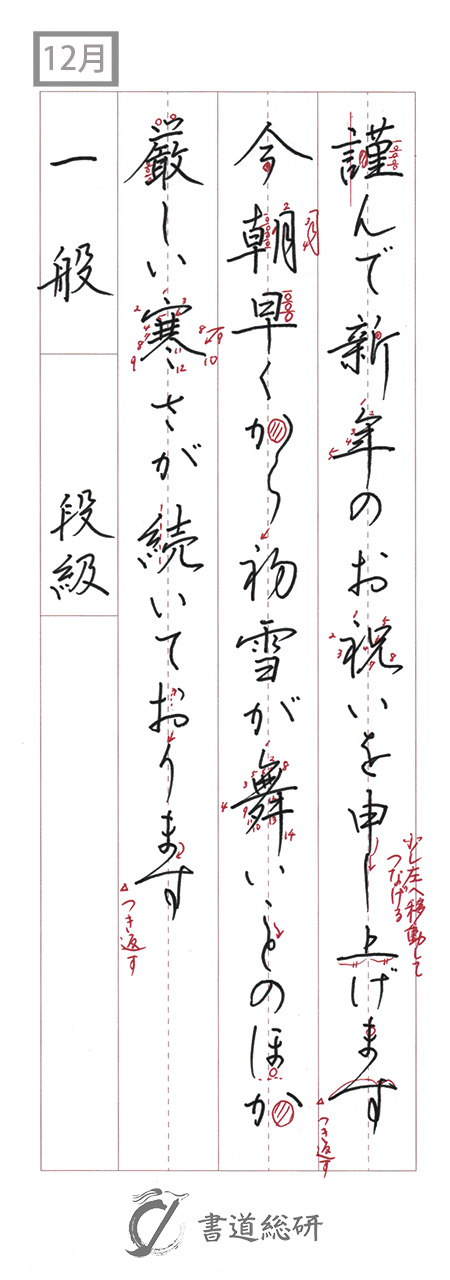 12月
謹んで新年のお祝いを申し上げます
少し左へ移動して
つなげる
つき返す
今朝早くから初雪が舞いことのほか
厳しい寒さが続いております
つき返す
一般
段級
書道総研